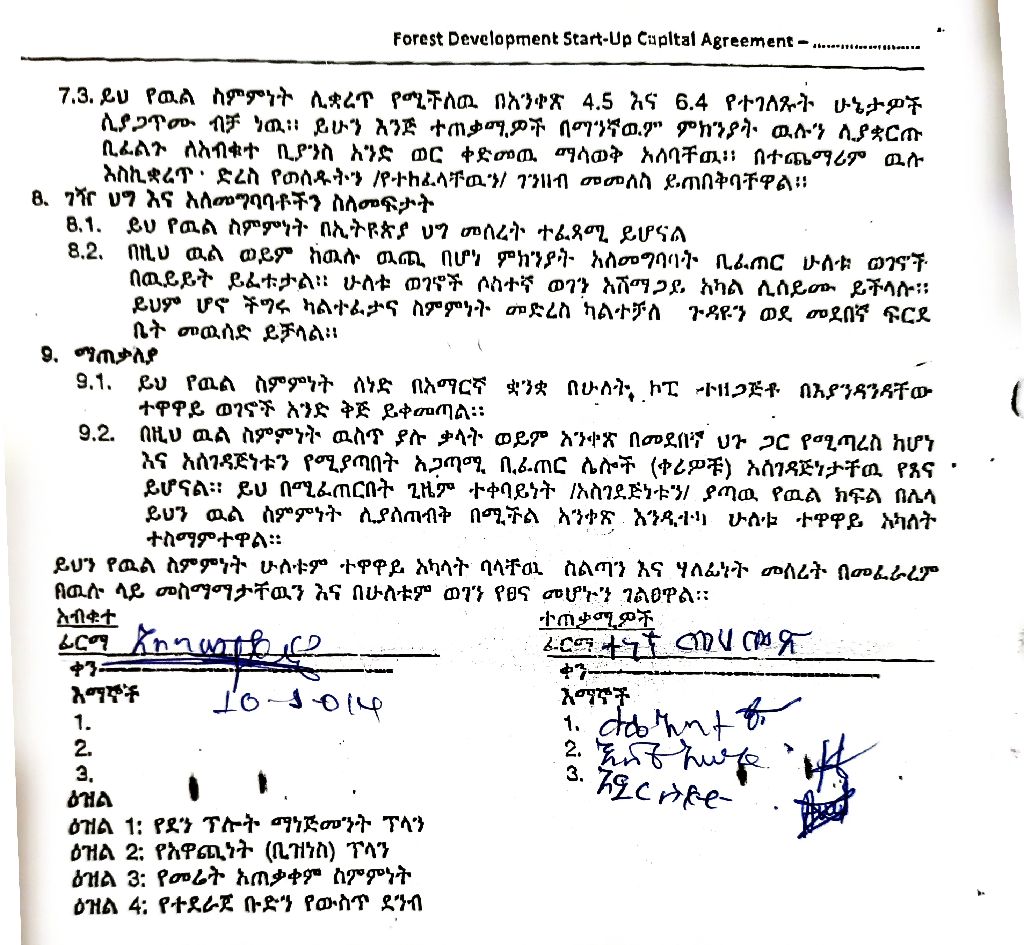 Forest Development Start-Up Capital Agreement – ........................
7.3. ይህ የዉል ስምምነት ሊቋረጥ የሚችለዉ በአንቀጽ 4.5 እና 6.4 የተገለጹት ሁኔታዎች
ሲያጋጥሙ ብቻ ነዉ። ይሁን እንጅ ተጠቃሚዎች በማንኛዉም ምክንያት ዉሉን ሊያቋርጡ
ቢፈልጉ ለአብቁተ ቢያንስ አንድ ወር ቀድመዉ ማሳወቅ አለባቸዉ። በተጨማሪም ዉሉ
እስኪቋረጥ ድረስ የወሰዱትን /የተከፈላቸዉን/ ገንዘብ መመለስ ይጠበቅባቸዋል።
8. ገዥ ህግ እና አለመግባባቶችን ስለመፍታት
8.1. ይህ የዉል ስምምነት በኢትዩጵያ ህግ መሰረት ተፈጻሚ ይሆናል
8.2. በዚህ ዉል ወይም ከዉሉ ዉጪ በሆነ ምክንያት አለመግባባት ቢፈጠር ሁለቱ ወገኖች
በዉይይት ይፈቱታል። ሁለቱ ወገኖች ሶስተኛ ወገን አሸማጋይ አካል ሊሰይሙ ይችላሉ።
ይህም ሆኖ ችግሩ ካልተፈታና ስምምነት መድረስ ካልተቻለ ጉዳዩን ወደ መደበኛ ፍርደ
ቤት መዉሰድ ይቻላል።
9. ማጠቃለያ
9.1. ይህ የዉል ስምምነት ሰነድ በአማርኛ ቋንቋ በሁለት ኮፒ ተዘጋጅቶ በእያንዳንዳቸው
ተዋዋይ ወገኖች አንድ ቅጅ ይቀመጣል።
9.2. በዚህ ዉል ስምምነት ዉስጥ ያሉ ቃላት ወይም አንቀጽ በመደበኛ ህጉ ጋር የሚጣረስ ከሆነ
እና አስገዳጅነቱን የሚያጣበት አጋጣሚ ቢፈጠር ሌሎች (ቀሪዎቹ) አስገዳጅነታቸዉ የጸና
ይሆናል። ይህ በሚፈጠርበት ጊዜም ተቀባይነት /አስገደጅነቱን/ ያጣዉ የዉል ክፍል በሌላ
ይህን ዉል ስምምነት ሊያስጠብቅ በሚችል አንቀጽ እንዲተካ ሁለቱ ተዋዋይ አካለት
ተስማምተዋል።
ይህን የዉል ስምምነት ሁለቱም ተዋዋይ አካላት ባላቸዉ ስልጣን እና ሃለፊነት መሰረት በመፈራረም
በዉሉ ላይ መስማማታቸዉን እና በሁለቱም ወገን የፀና መሆኑን ገልፀዋል።
አብቁተ
ፊርማ
ቀን
10-1-014
እማኞች
1.
2.
3.
ተጠቃሚዎች
ፊርማ
ቀን
እማኞች
1.
2.
3.
ዕዝል
ዕዝል 1: የደን ፕሎት ማነጅመንት ፕላን
ዕዝል 2: የአዋጪነት (ቢዝነስ) ፕላን
ዕዝል 3: የመሬት አጠቃቀም ስምምነት
ዕዝል 4: የተደራጀ ቡድን የውስጥ ደንብ